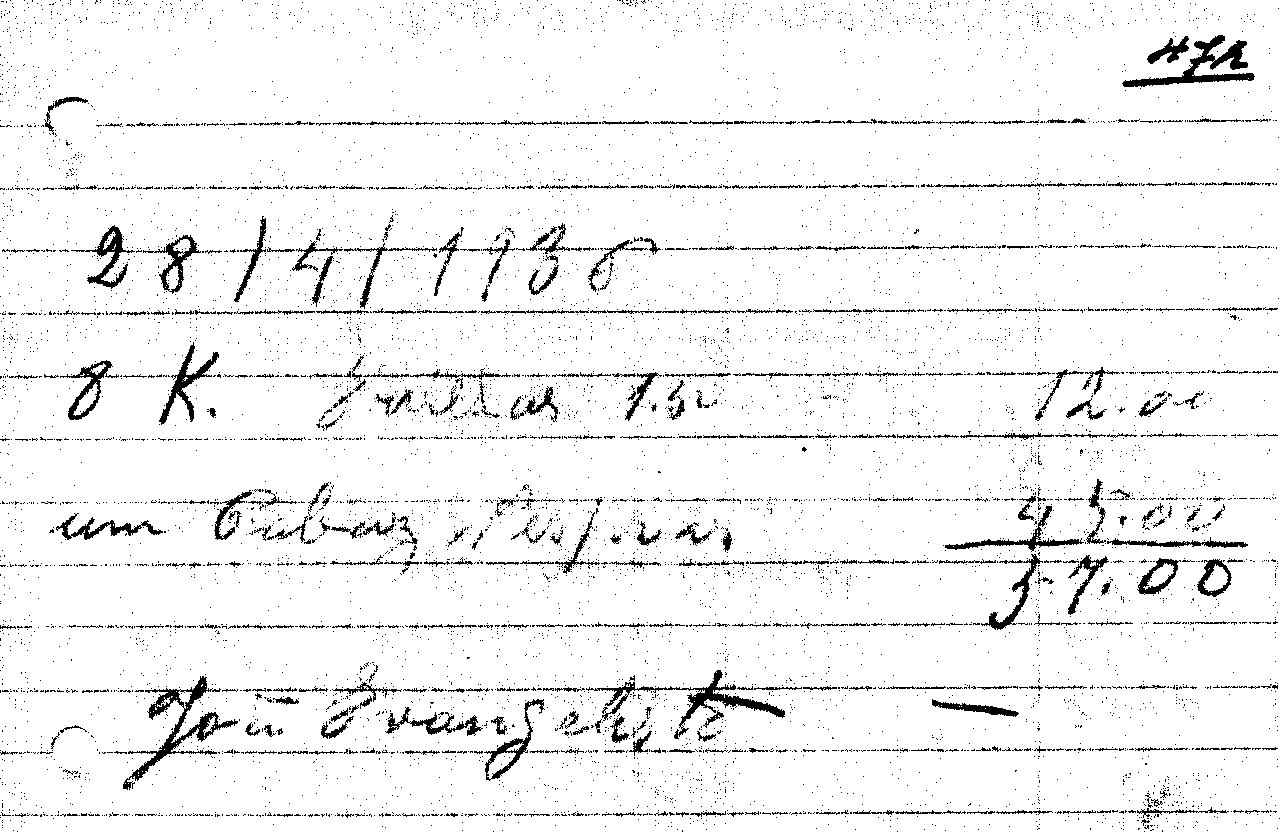 472
28/4/1938
8 K. 1.50 12.00
um 45.00
57.00
João Evangelista —